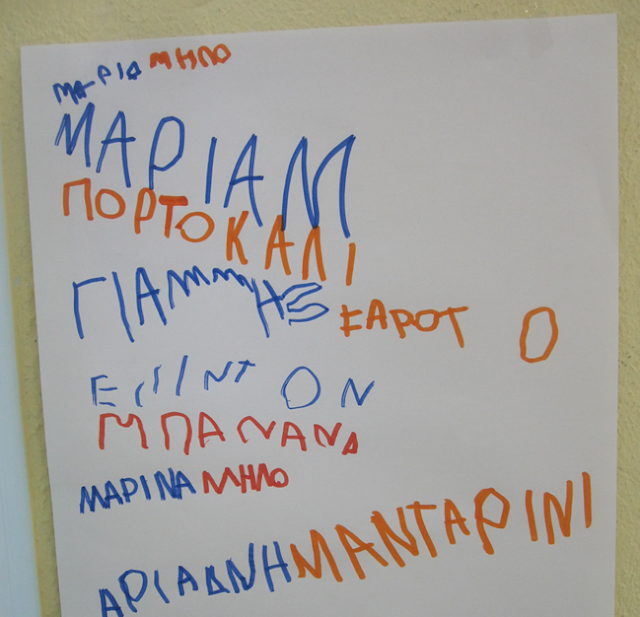 ΜΑΡΙΑ ΜΗΛΟ
ΜΑΡΙΑΜ
ΠΟΡΤΟΚΑΛΙ
ΓΙΑΝΝΗΣ ΚΑΡΟΤ Ο
ΜΠΑΝΑΝΑ
ΜΑΡΙΝΑ ΜΗΛΟ
ΑΡΙΑΔΝΗ ΜΑΝΤΑΡΙΝΙ